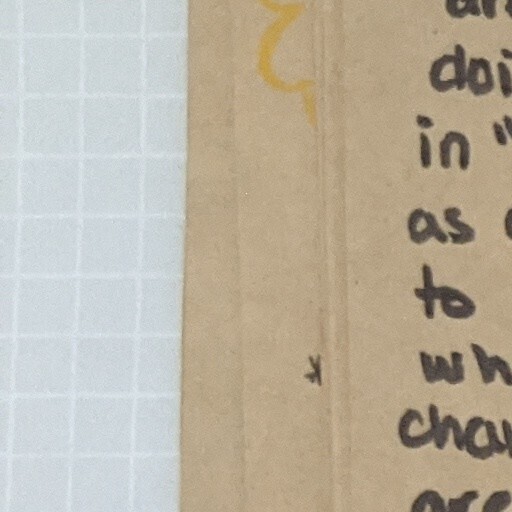 doi
in "
as
to
wh
cha
are